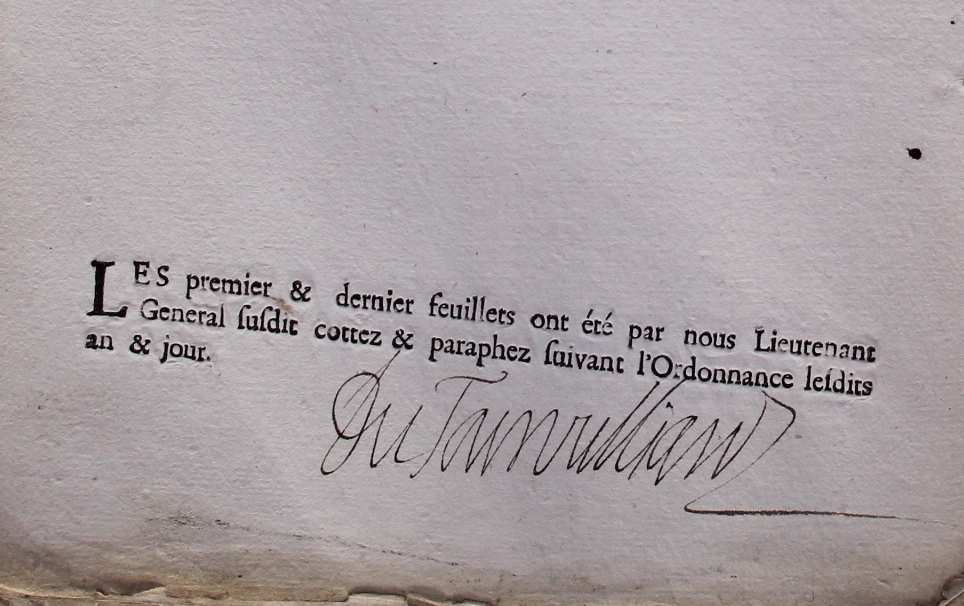 LES premier & dernier feuillets ont été par nous Lieutenant
General ſuſdit cottez & paraphez ſuivant l'Ordonnance leſdits
an & jour.